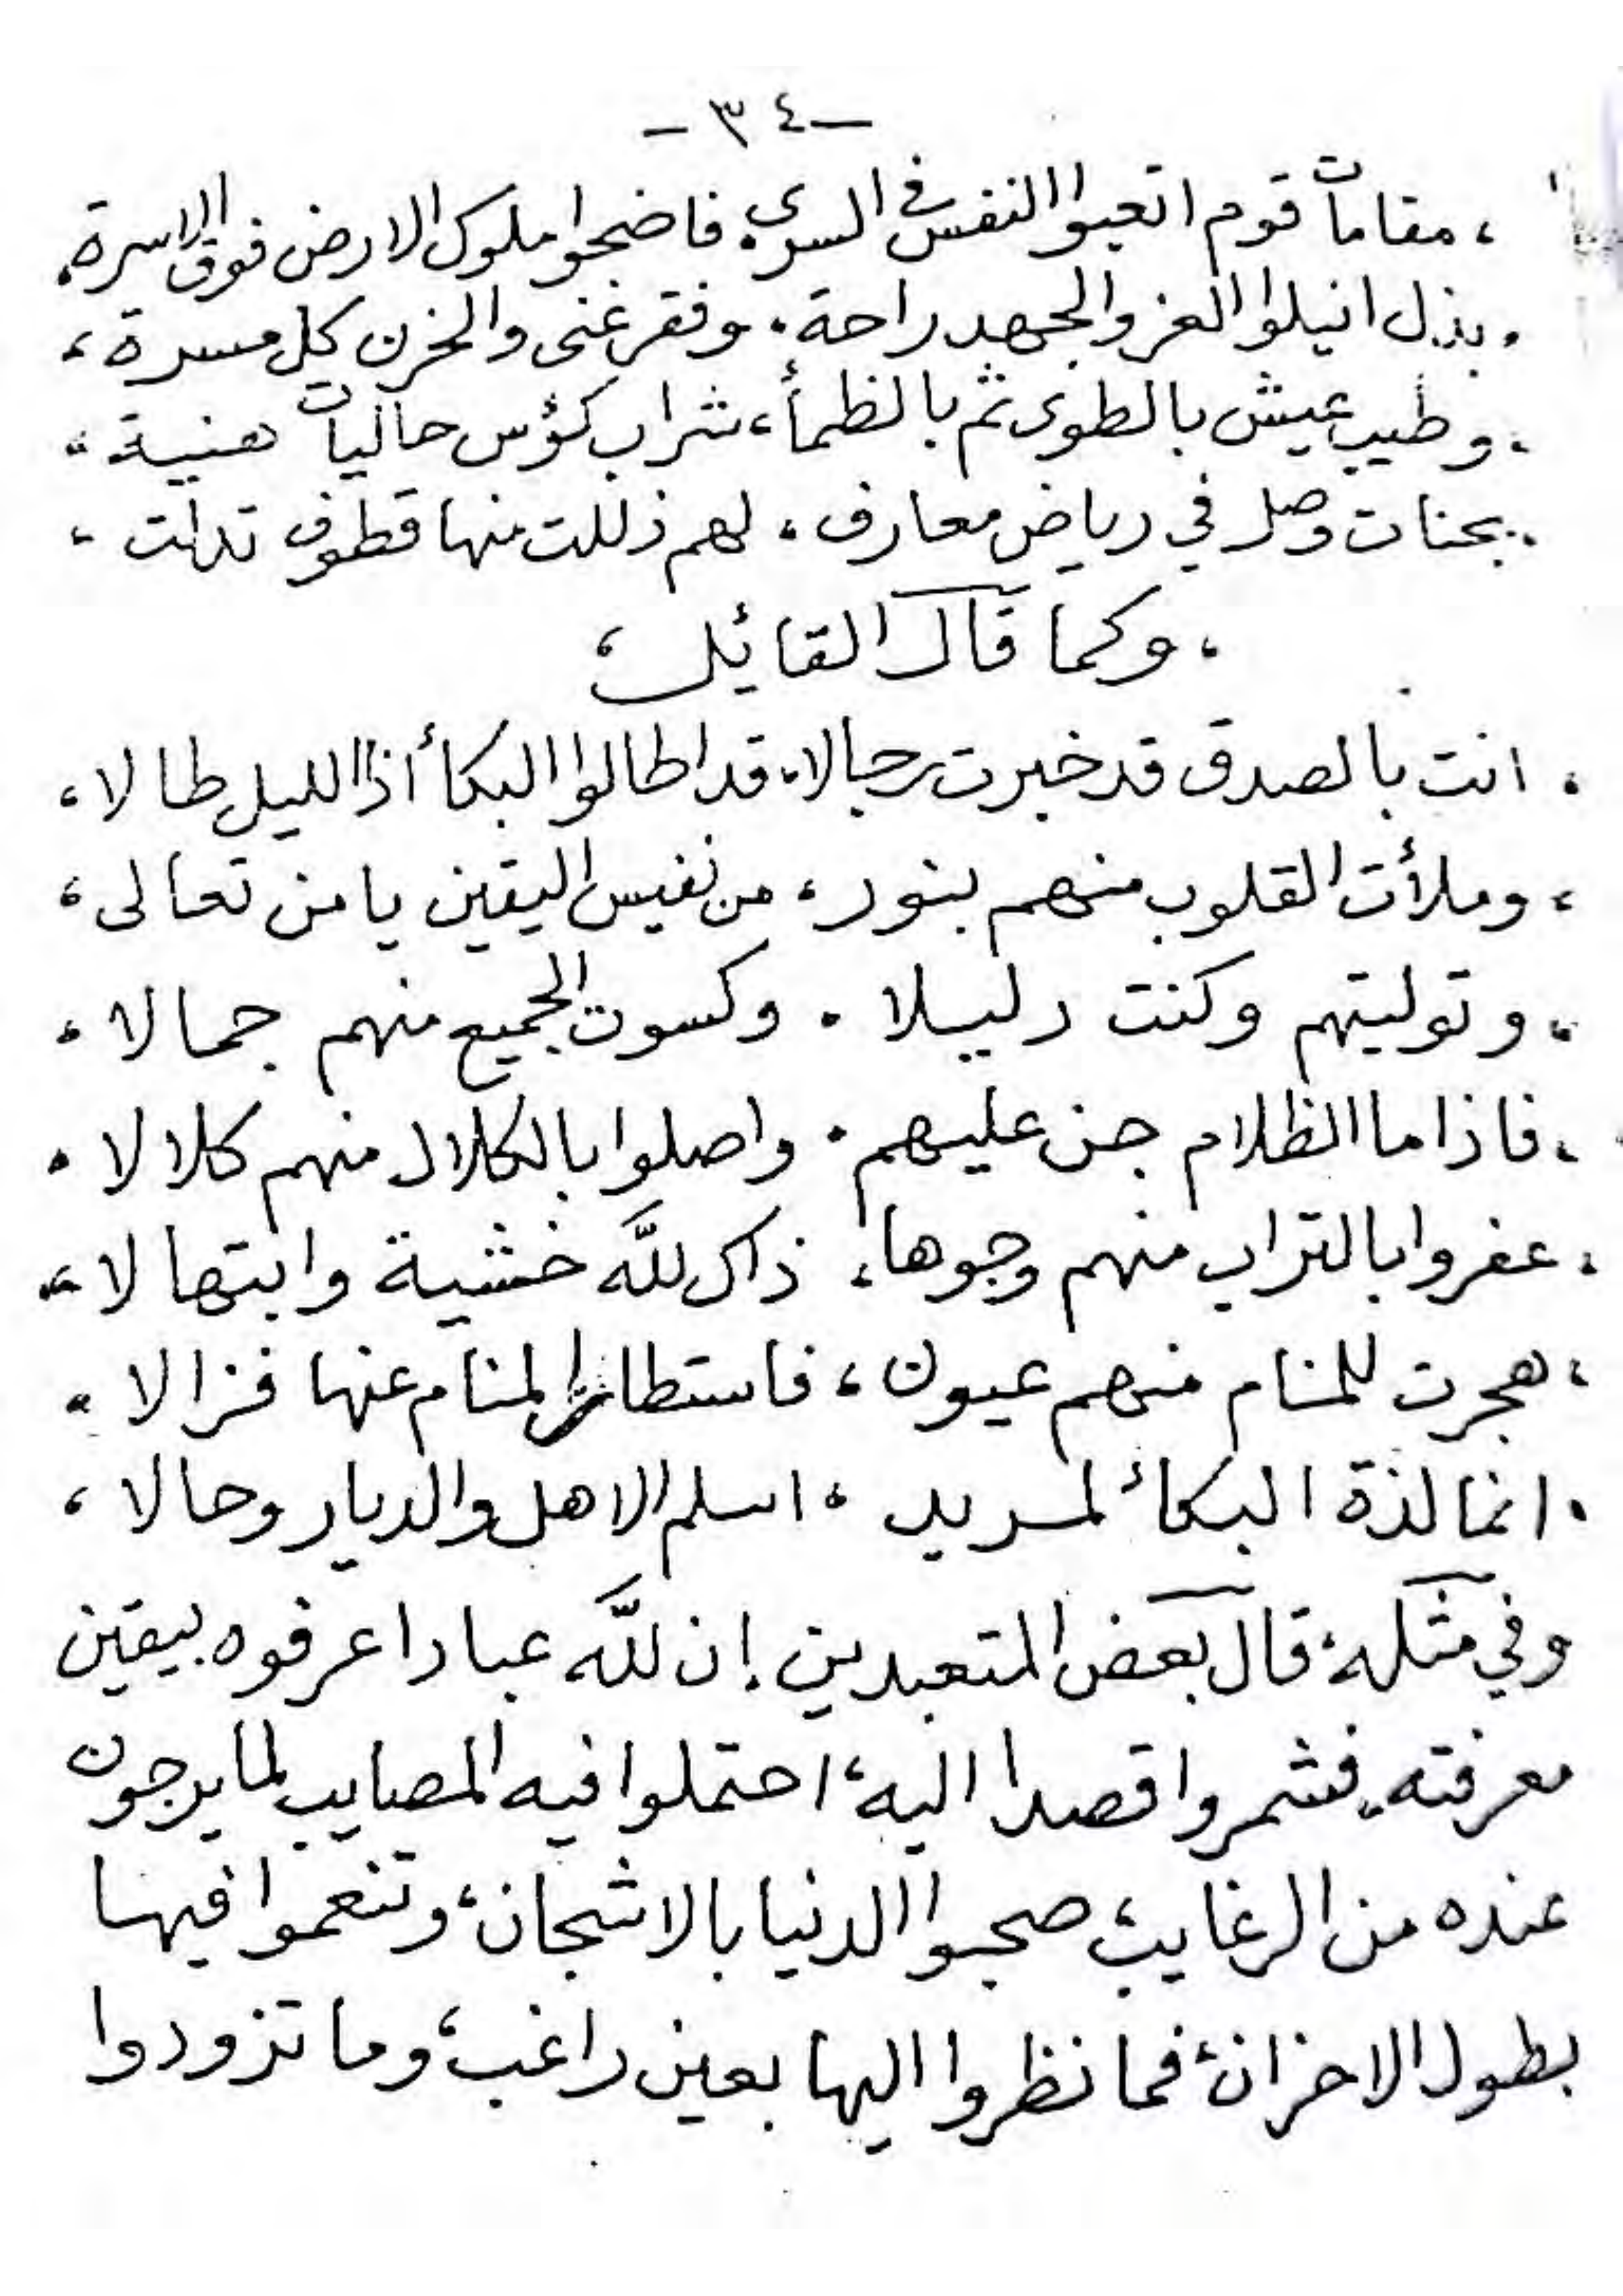 - ٣٤ -
، مقامات قوم اتعبوا النفس في السرى. فاضحوا ملوك الارض فوق الاسرة.
. بذل انيلوا العز والجهد راحة. وفقر غنى والحزن كل مسرة،
. وطيب عيش بالطوى ثم بالظمأ، شراب كؤس حاليات هنية،
. بجنات وصل في رياض معارف، لهم ذللت منها قطوف تدلت،
، وكما قال القايل،
. انت بالصدق قد خبرت رجالا. قد اطالوا البكأ اذا الليل طالا،
، وملأت القلوب منهم بنور، من نفيس اليقين يا من تعالى،
، وتوليتهم وكنت دليلا . وكسوت الجميع منهم جمالا،
، فاذا ما الظلام جن عليهم . واصلوا بالكلال منهم كلالا .
، عفروا بالتراب منهم وجوها، ذاك لله خشية وابتهالا،
، هجرت للمنام منهم عيون، فاستطار المنام عنها فزالا .
. انما لذة البكأ لمريد ، اسلم الاهل والديار وحالا،
وفي مثله، قال بعض المتعبدين إن لله عبادا عرفوه بيقين
معرفته. فشمروا قصدا اليه، احتملوا فيه المصايب لما يرجون
عنده من الرغايب، صحبوا الدنيا بالاشجان، وتنعموا فيها
بطول الاحزان، فما نظروا اليها بعين راغب، وما تزودوا